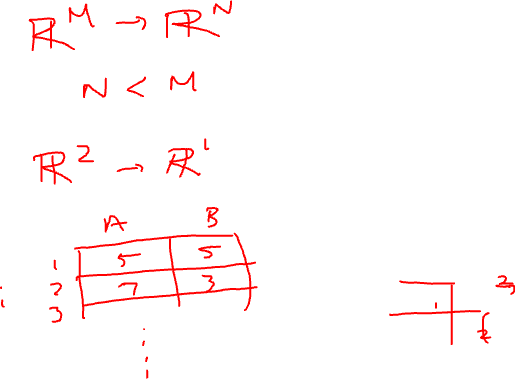 ℝ^M → ℝ^N
N < M
ℝ^2 → ℝ^1
A B
1 5 5
2 7 3
3